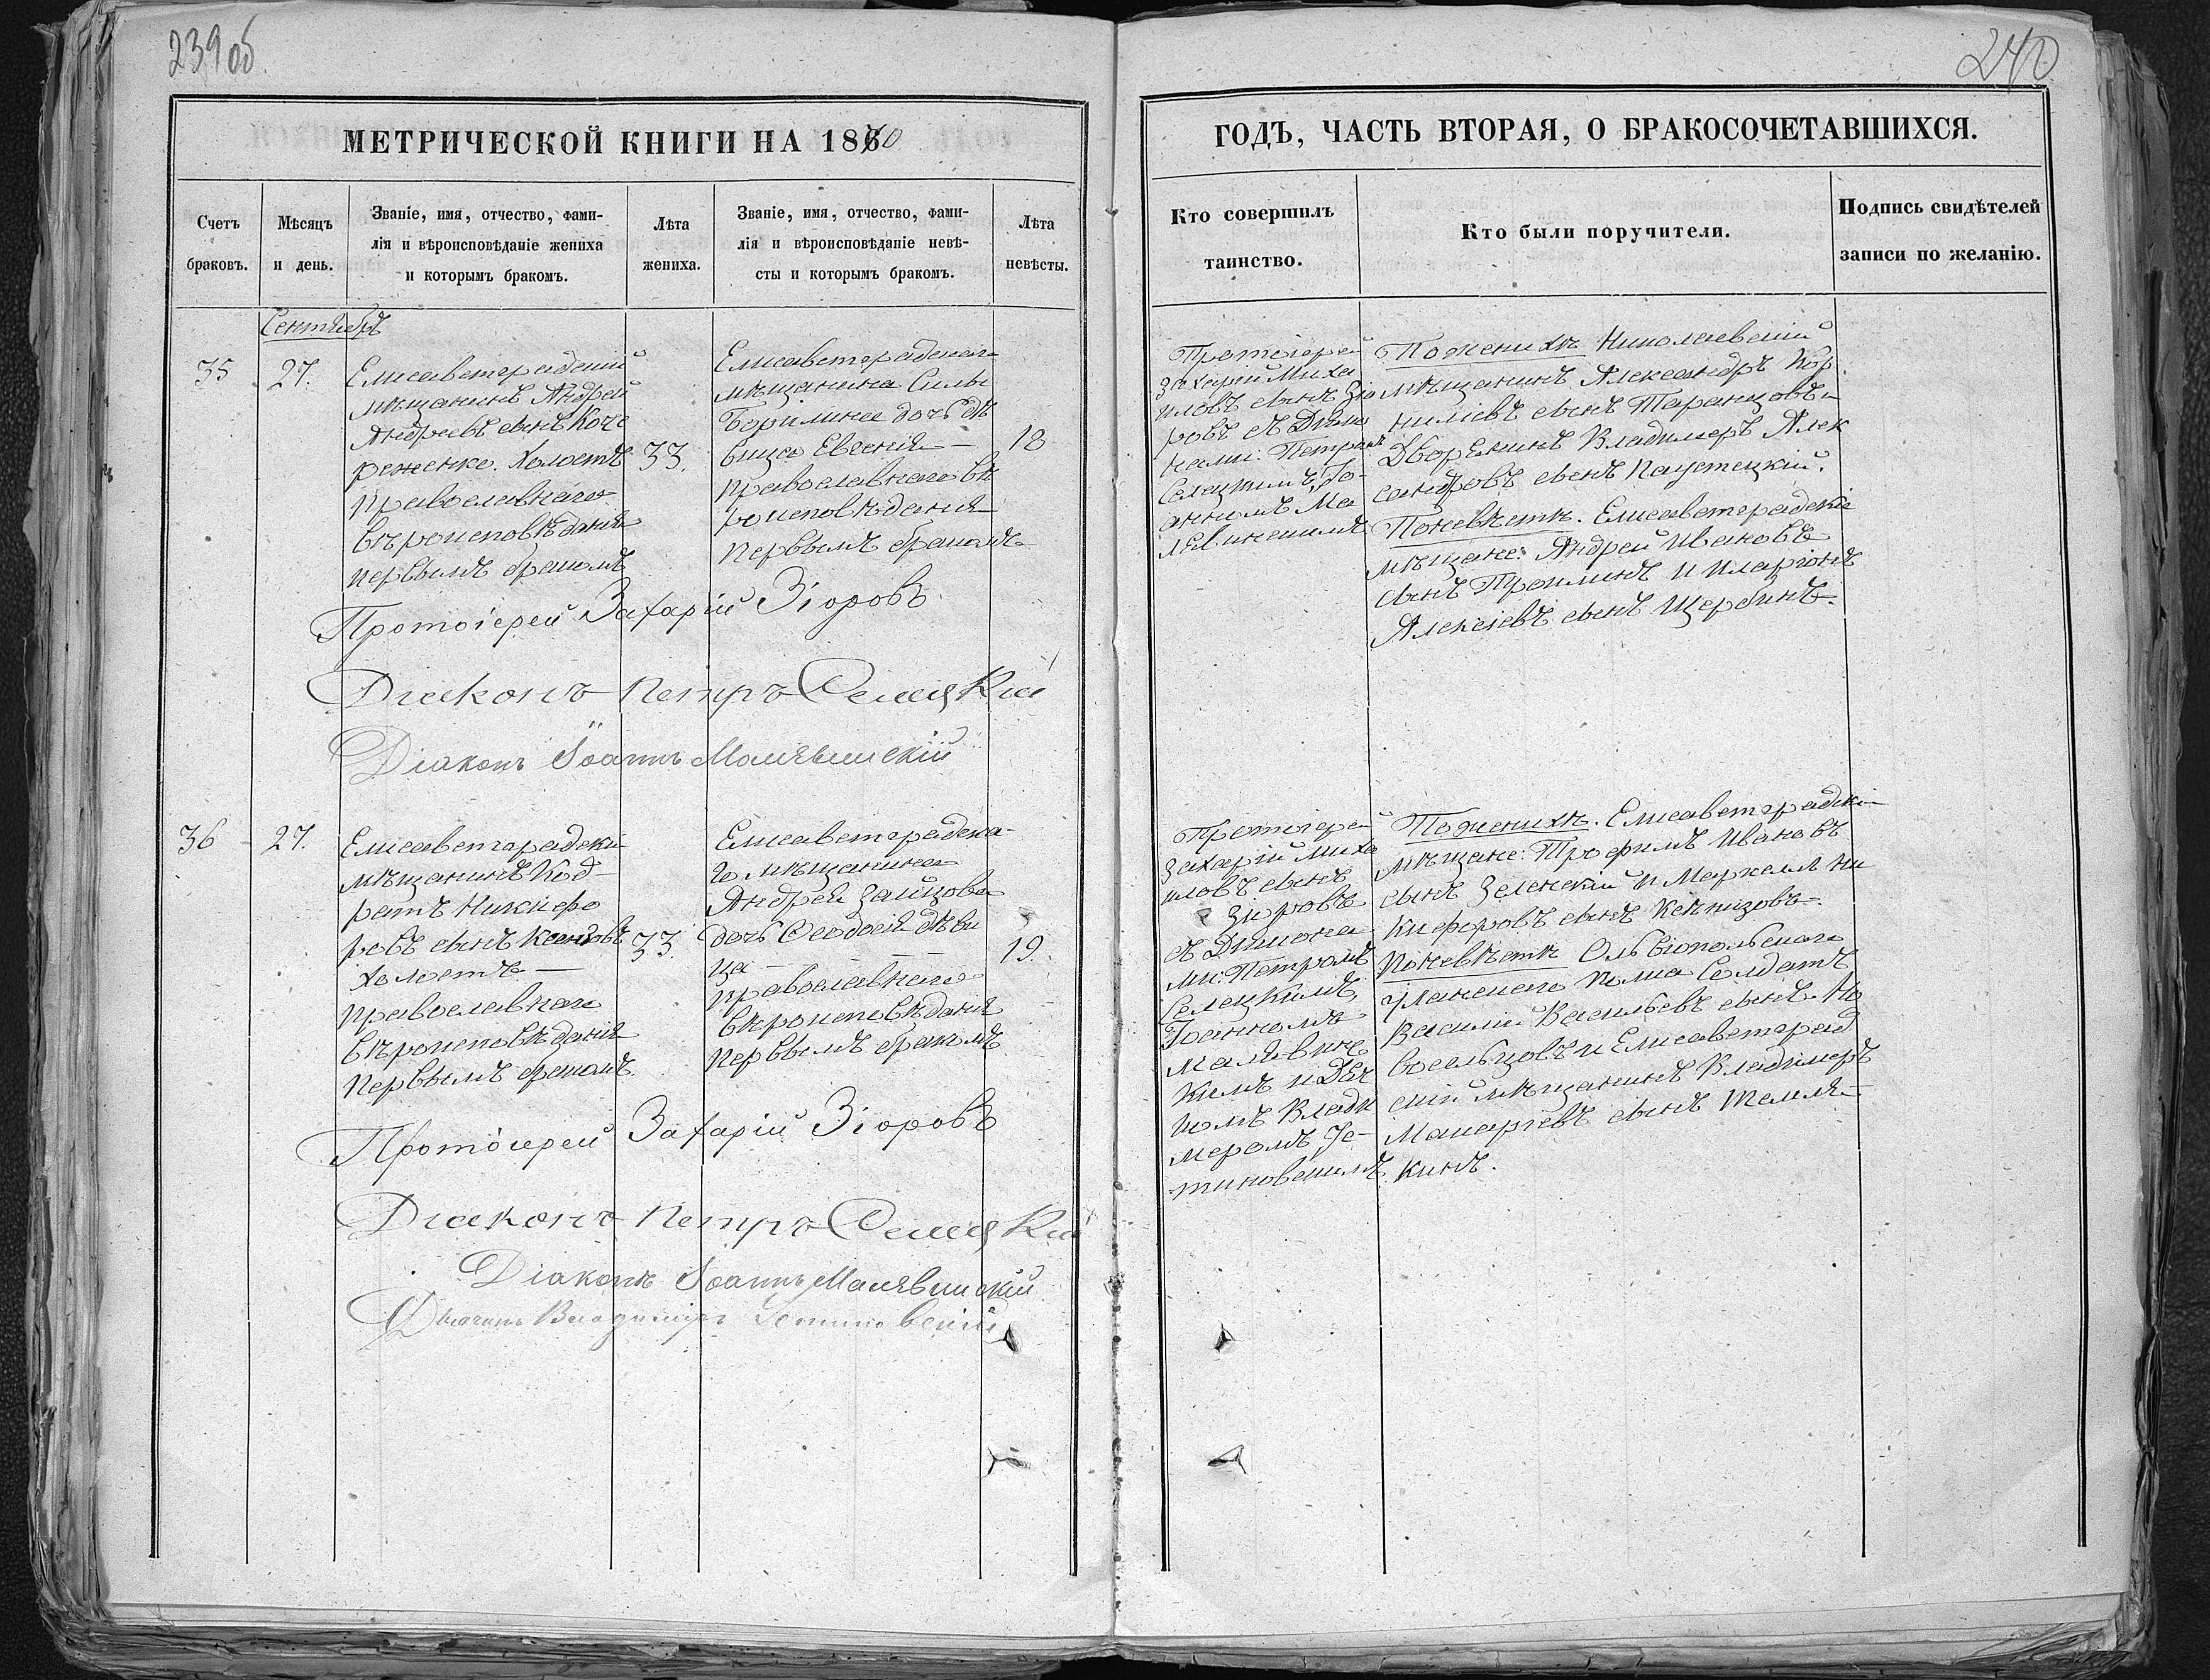 239 об
240
МЕТРИЧЕСКОЙ КНИГИ НА 1870
ГОДЪ, ЧАСТЬ ВТОРАЯ, О БРАКОСОЧЕТАВШИХСЯ.
Счетъ
браковъ.
Мѣсяцъ
и день.
Званіе, имя, отчество, фами-
лія и вѣроисповѣданіе жениха
и которымъ бракомъ.
Лѣта
жениха.
Званіе, имя, отчество, фами-
лія и вѣроисповѣданіе невѣ-
сты и которымъ бракомъ.
Лѣта
невѣсты.
Кто совершилъ
таинство.
Кто были поручители.
Подпись свидѣтелей
записи по желанію.
Сентябрь
35
27.
Елисаветградскій
мѣщанинъ Андрей
Андреевъ сынъ Коче
реженко. Холостъ
православнаго
вѣроисповѣданія
первымъ бракомъ
33.
Елисаветградскаго
мѣщанина Силы
дочь дѣ
вица Евгенія
православнаго вѣ
роисповѣданія
первымъ бракомъ
18
Протоіерей
Захарій Миха
иловъ сынъ Зіо
ровъ съ Діако
нами: Петромъ
Селецкимъ, Іо-
анномъ Ма
лявинскимъ
По женихѣ Николаевскій
мѣщанинъ Александръ Кор
ниліевъ сынъ Таранцовъ и
Дворянинъ Владимеръ Алек
сандровъ сынъ Паустецкій.
По невѣстѣ. Елисаветградскіе
мѣщане: Андрей Ивановъ
сынъ Проминъ и Иларіонъ
Алексіевъ сынъ Щербинъ.
Протоіерей Захарій Зіоровъ
Діаконъ Петръ Селецкій
Діаконъ Іоаннъ Малявинскій
36
27.
Елисаветградскій
мѣщанинъ Код-
ратъ Никифо
ровъ сынъ
холостъ
православнаго
вѣроисповѣданія
первымъ бракомъ
33.
Елисаветградска-
го мѣщанина
Андрея Зайцова
дочь Ѳеодосія дѣви
ца
православнаго
вѣроисповѣданія
первымъ бракомъ
19.
Протоіерей
Захарій Миха
иловъ сынъ
Зіоровъ
съ Діакона
ми: Петромъ
Селецкимъ,
Іоанномъ
Малявинс
кимъ и Дья
комъ Влади
меромъ Ус-
тиновскимъ
По женихѣ. Елисаветградскіе
мѣщане: Трофимъ Ивановъ
сынъ Зеленскій и Маркеллъ Ни
кифоровъ сынъ
По невѣстѣ Ольвіопольскаго
Уланскаго полка Солдатъ
Василій Васильевъ сынъ Но
восельцовъ и Елисаветград
скій мѣщанинъ Владимеръ
Макаріевъ сынъ Темля-
кинъ.
Протоіерей Захарій Зіоровъ
Діаконъ Петръ Селецкій
Діаконъ Іоаннъ Малявинскій
Дьячекъ Владиміръ Устиновскій